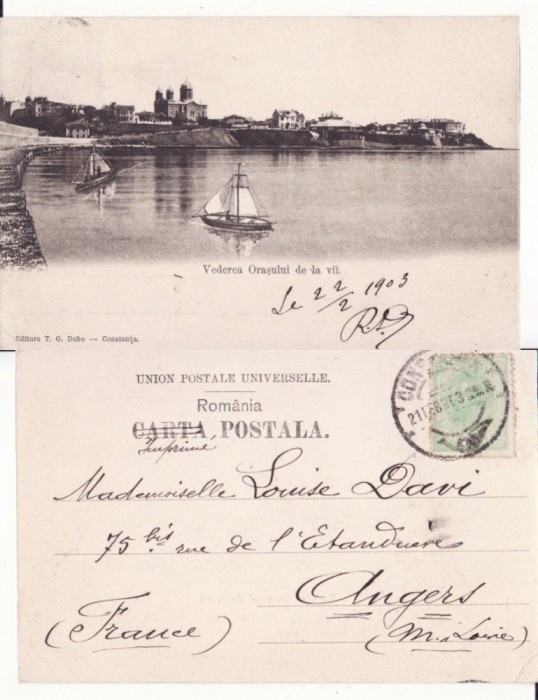 Vederea Orașului de la vii.
Le 22/2 1903
Editura T. G. Dabo — Constanța.
UNION POSTALE UNIVERSELLE.
România
CARTA POSTALA.
Imprimé
Mademoiselle Louise Davi
75 bis rue de l'Etanduère
Angers
(France) (M. Loire)